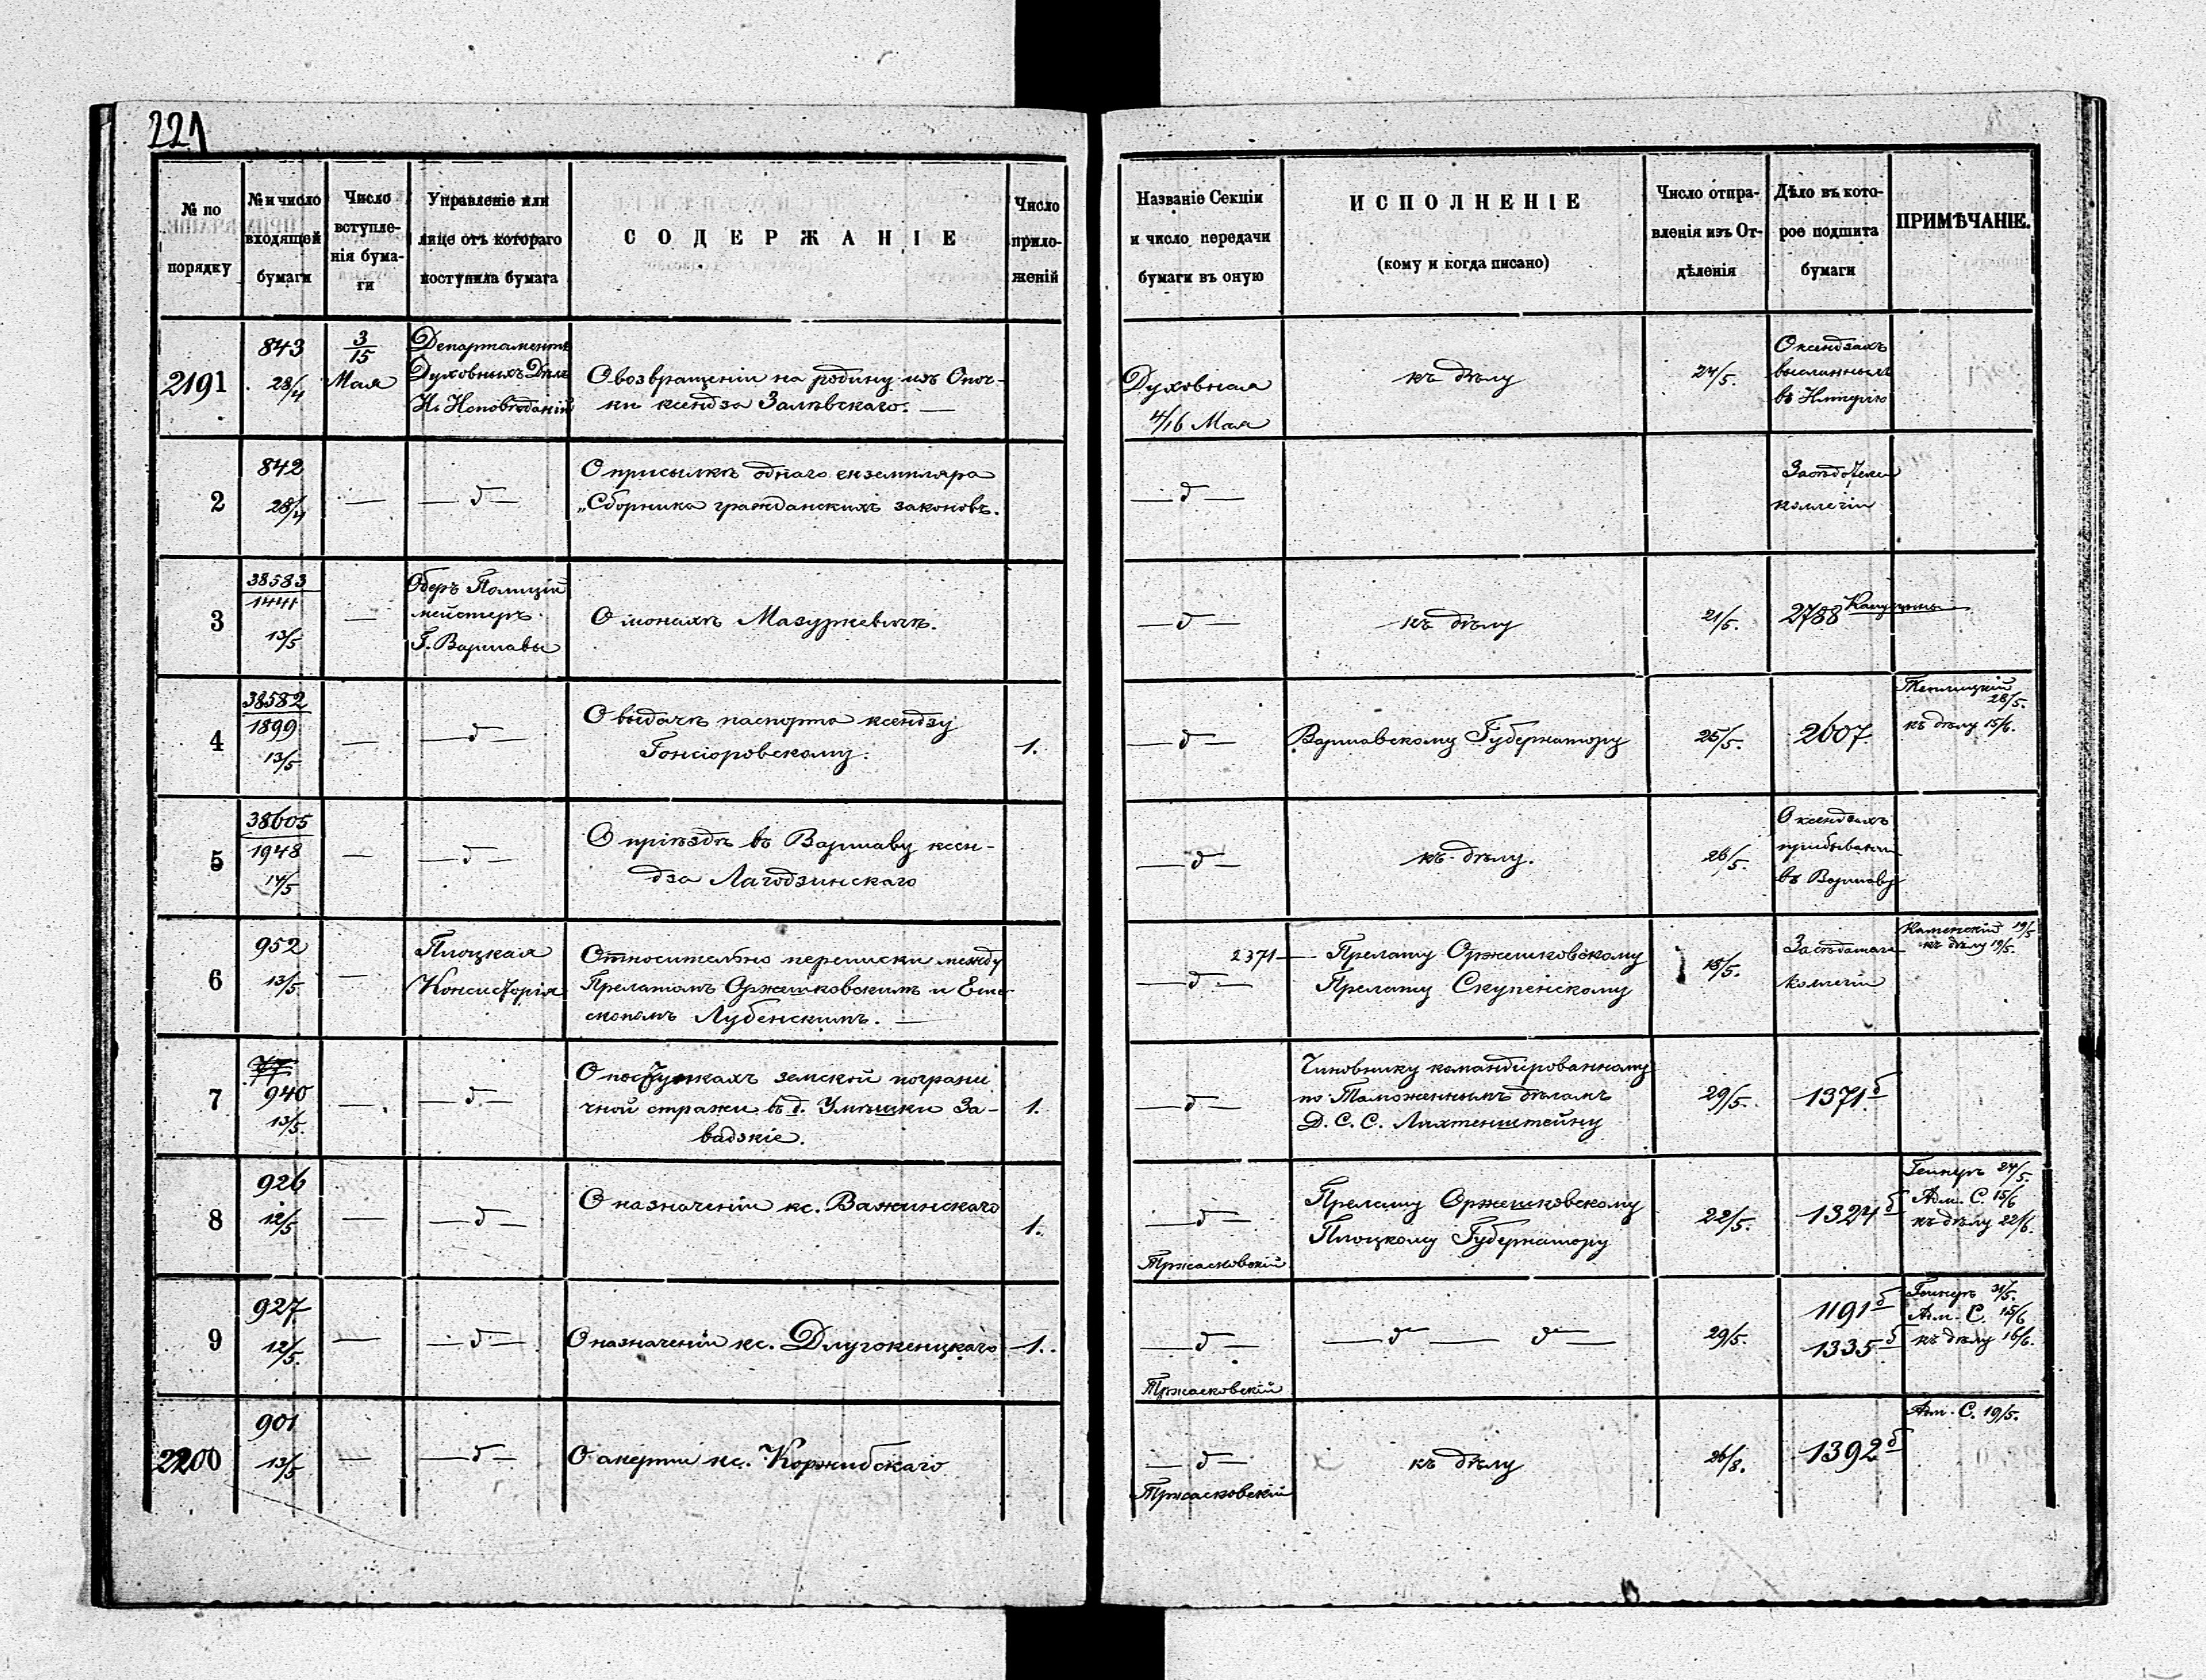 221
№ по порядку
№ и число входящей бумаги
Число вступленія бумаги
Управленіе или лице отъ котораго поступила бумага
СОДЕРЖАНІЕ
Число приложеній
Названіе Секціи и число передачи бумаги въ оную
ИСПОЛНЕНІЕ
(кому и когда писано)
Число отправленія изъ Отдѣленія
Дѣло въ которое подшита бумаги
ПРИМѢЧАНІЕ.
2191
843
28/4
3/15
Мая
Департаментъ
Духовныхъ Дѣлъ
Ин. Исповѣданій
О возвращеніи на родину изъ Опоч-
ки ксендза Залѣвскаго. —
Духовная
4/16 Мая
къ дѣлу
24/5.
О ксендзахъ
высланныхъ
въ Имперію
2
842
28/4
—
— д —
О присылкѣ однаго екземпляра
„Сборника гражданскихъ законовъ.
— д —
коллегіи
3
38583
1441
13/5
—
Оберъ Полицій
мейстеръ
Г. Варшавы
О монахѣ Мазуркевичѣ.
— д —
къ дѣлу
21/5.
2788
4
38582
1899
13/5
—
— д —
О выдачѣ паспорта ксендзу
Гонсіоровскому.
1.
— д —
Варшавскому Губернатору
25/5.
2607
28/5.
къ дѣлу 15/6.
5
38605
1948
14/5
—
— д —
О пріѣздѣ въ Варшаву ксен-
дза Лагодзинскаго
— д —
къ дѣлу.
26/5.
О ксендзахъ
въ Варшаву
6
952
13/5
—
Плоцкая
Консисторія
Относительно переписки между
Прелатомъ Оржешковскимъ и Епи-
скопомъ Лубенскимъ. —
2371 —
— д —
Прелату Оржешковскому
Прелату Скупенскому
15/5.
коллегіи
Каменскій 19/5
къ дѣлу 19/5.
7
940
13/5.
—
— д —
О поступкахъ земской пограни
чной стражи въ д. Умѣшки За-
вадзкіе.
1.
— д —
Чиновнику командированному
по Таможеннымъ дѣламъ
Д. С. С. Лихтенштейну
29/5.
1371 б
8
926
12/5
—
— д —
О назначеніи кс. Важинскаго
1.
— д —
Тржасковскій
Прелату Оржешковскому
Плоцкому Губернатору
22/5.
1324 б
24/5.
Адм. С. 15/6
къ дѣлу 22/6.
9
927
12/5.
—
— д —
О назначеніи кс. Длугокенцкаго
1.
— д —
Тржасковскій
— д — д —
29/5.
1191 б
1335 б
31/5.
Адм. С. 15/6
къ дѣлу 16/6.
2200
901
13/5
—
— д —
О смерти кс. Коржибскаго
— д —
Тржасковскій
къ дѣлу
26/8.
1392 б
Адм. С. 19/5.